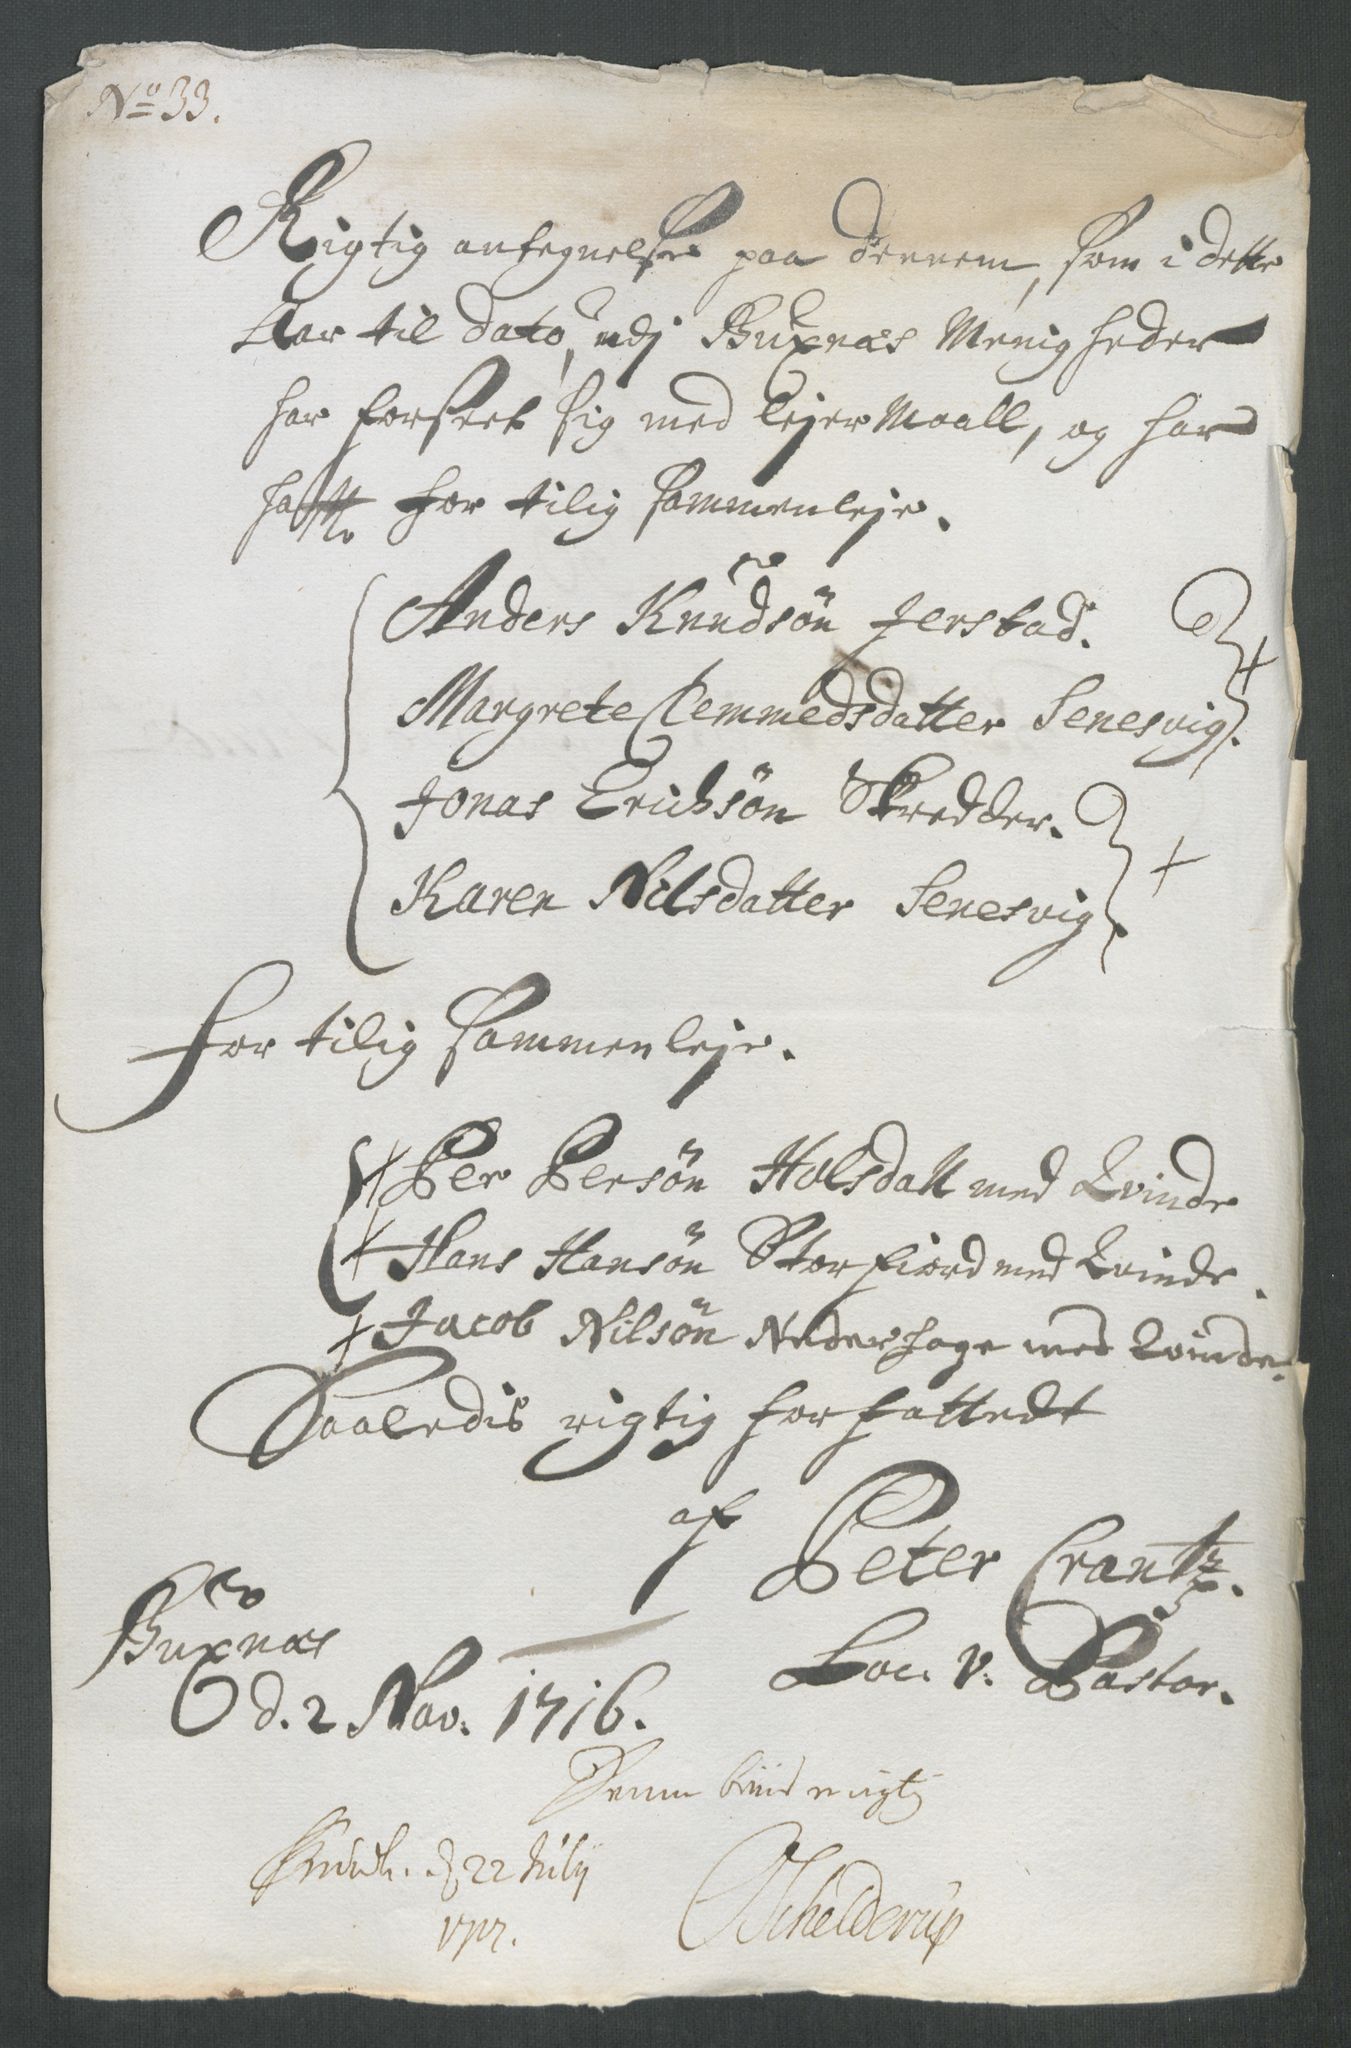 No 33.
Rigtig antegnelse paa dennem, som i dette
Aar til dato, udj Buxnæs Menigheder
har forseet sig med lejerMaall, og har
hafft for tilig sammenleje.
Anders Knudsøn Jerstad.
Margrete Clemmedsdatter Senesvig.
Jonas Erichsøn Skredder.
Karen Nilsdatter Senesvig.
For tilig sammenleje.
Per Persøn Holsdall med Qvinde
Hans Hansøn Storfiord med Qvinde.
Jacob Nilsøn Nederhage med Qvinde.
Saaledis rigtig forfattedt
af Peter Crantz.
Buxnæs
d. 2 Nov. 1716.
Loc. V. Pastor.
rigtig
d 22 July
1717.
Schelderup